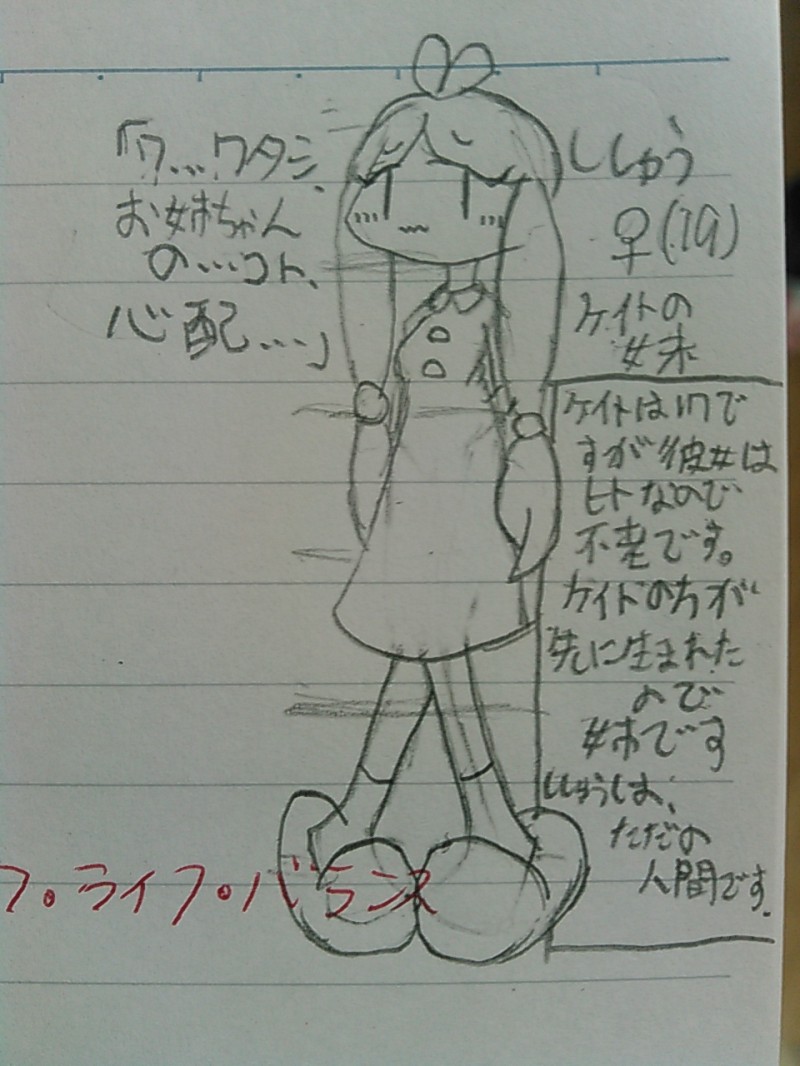 「ワ...ワタシ、
お姉ちゃん
の...コト、
心配...」
ししゅう
♀(19)
ケイトの
妹
ケイトは17で
すが彼女は
ヒトなので
不老です。
ケイトの方が
先に生まれた
ので
姉です
ししゅうは、
ただの
人間です.
フ・ライフ・バランス